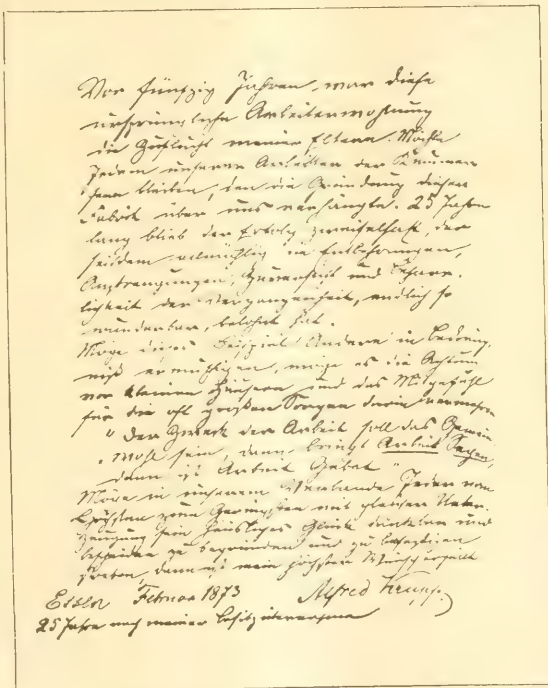 Vor fünfzig Jahren war diese
ursprüngliche Arbeiterwohnung
die Zuflucht meiner Eltern. Möchte
Jedem unserer Arbeiter der Kummer
fern bleiben, den die Gründung dieser
Fabrik über uns verhängte. 25 Jahre
lang blieb der Erfolg zweifelhaft, der
seitdem allmählig die Entbehrungen,
Anstrengungen, Zuversicht und Beharr-
lichkeit der Vergangenheit, endlich so
wunderbar, belohnt hat.
Möge dieses Beispiel Andere in Bedräng-
niß ermuthigen, möge es die Achtung
vor kleinen Häusern und das Mitgefühl
für die oft großen Sorgen darin vermehren
"Der Zweck der Arbeit soll das Gemein-
wohl sein, dann bringt Arbeit Segen,
dann ist Arbeit Gebet"
Möge in unserem Verbande Jeder vom
Höchsten zum Geringsten mit gleicher Ueber-
zeugung sein häusliches Glück dankbar und
bescheiden zu begründen und zu befestigen
streben, dann ist mein höchster Wunsch erfüllt
Essen Februar 1873 Alfred Krupp.
25 Jahre nach meiner Besitzübernahme